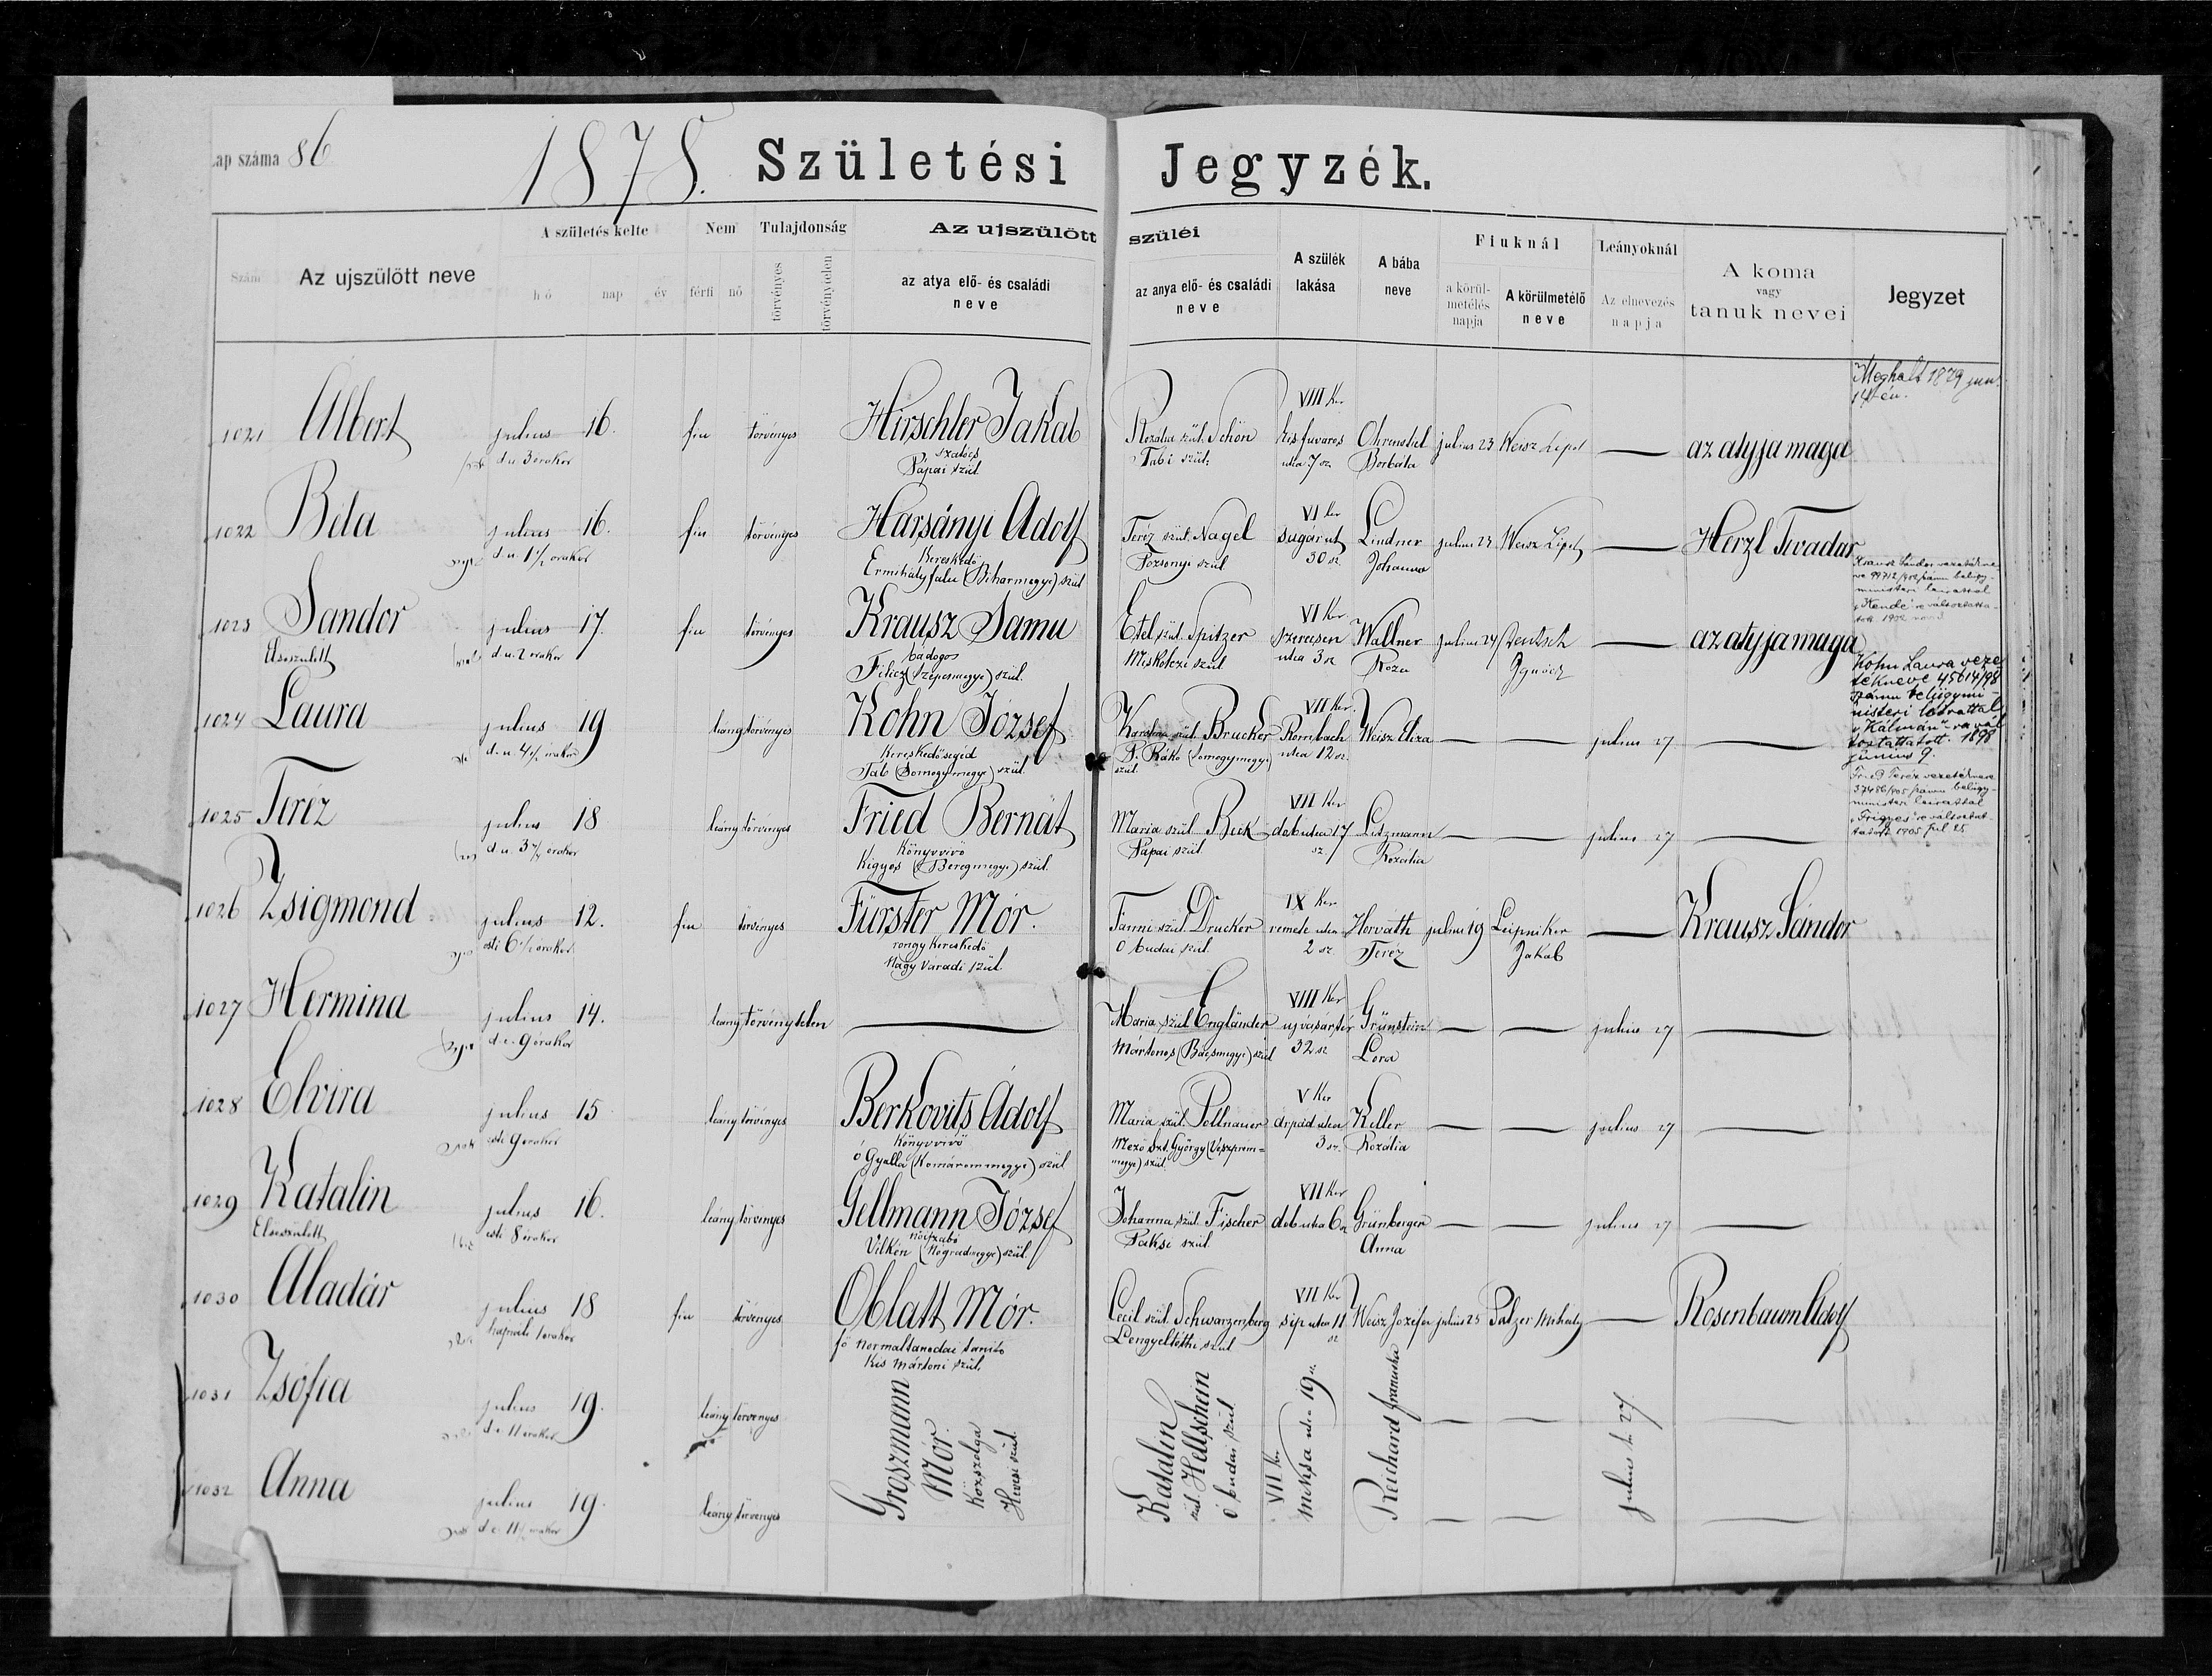 Lap száma 86
1878. Születési Jegyzék.
Szám
Az ujszülött neve
A születés kelte
hó nap év
Nem
férfi nő
Tulajdonság
törvényes
törvénytelen
Az ujszülött szüléi
az atya elő- és családi
neve
az anya elő- és családi
neve
A szülék
lakása
A bába
neve
Fiuknál
a körül-
metélés
napja
A körülmetélő
neve
Leányoknál
Az elnevezés
napja
A koma
vagy
tanuk nevei
Jegyzet
1021 Albert julius 16. fiu törvényes Hirschler Jakab Rozalia szül. Schön VIII Ker
d u 3 orakor szatócs Tabi szül. kis fuvaros Ohrenstiel julius 23 Weisz Lipot — az atyja maga
Pápai szül utca 7 sz. Borbála
Meghalt 1879 jun.
14én.
1022 Béla julius 16. fiu törvényes Harsányi Adolf Teréz szül. Nagel VI ker
d. u. 1 1/2 orakor Kereskedő Pozsonyi szül sugárut Lindner julius 23 Weisz Lipot — Herzl Tivadar
Ermihályfalu (Biharmegye) szül 30 sz Johanna
1023 Sandor julius 17. fiu törvényes Krausz Samu Etel szül. Spitzer VI Ker
Elsőszülött d. u. 2 orakor bádogos Miskolczi szül szerecsen Wallner julius 24 Deutsch — az atyja maga
(Szepesmegye) szül. utca 3 sz Roza Ignácz
Krausz Sándor vezetékne-
ve 99712/902 számu belügy-
ministeri leirattal
"Kende" re változtatta-
tott 1902 nov 3
1024 Laura julius 19 leány törvényes Kohn József szül. Brucker VII Ker.
d. u. 4 1/2 orakor Kereskedősegéd (Somogymegye) Rombach Weisz Eliza — — julius 27 —
Tab (Somogymegye) szül. szül. utca 12 sz.
Kohn Laura veze
tékneve 45614/98
számu belügymi-
nisteri leirattal
"Kálmán"-ra vál
toztattatott. 1898
junius 9.
1025 Teréz julius 18 leány törvényes Fried Bernát Maria szül Beck VII Ker
d. u. 3 orakor Könyvvivő Pápai szül. dob utca 17 Rozália — — julius 27 —
Kigyós (Beregmegye) szül. sz
Fried Teréz vezetékneve
37486/905 számu belügy-
ministeri leirattal
"Frigyes" re változtat-
tatott 1905 jul 25
1026 Zsigmond julius 12. fiu törvényes Fürster Mór. Fanni szül. Drucker IX Ker
esti 6 1/2 orakor rongy Kereskedő O budai szül. remete utca Horváth julius 19 Leipniker — Krausz Sándor
Nagy Váradi szül. 2 sz. Teréz Jakab
1027 Hermina julius 14. leány törvénytelen — Maria szül Engländer VIII Ker
d. e. 9 orakor Mártonos (Bácsmegye) szül ujvásártér Grünstein — — julius 27 —
32 sz Lora
1028 Elvira julius 15 leany törvényes Berkovits Adolf Maria szül. Pollnauer V Ker
esti 9 orakor Könyvvivő Mező Szt. György (Veszprém= árpád utca Keller — — julius 27 —
ó Gyalla (Komárommegye) szül megye) szül. 3 sz. Rozália
1029 Katalin julius 16. leány törvényes Gellmann József Johanna szül. Fischer VII Ker
Elsőszülött esti 8 orakor nőiszabó Paksi szül. dob utca 6 sz Grünberger — — julius 27 —
(Nogradmegye) szül. Anna
1030 Aladár julius 18 fiu törvényes Oblatt Mór. Cecil szül. Schwarzenberg VII Ker
hajnali 1 orakor fő normaltanodai tanitó Lengyeltóthi szül sip utca 11 Weisz Jozefa julius 25 Mihály — Rosenbaum Adolf
Kis mártoni szül. sz
1031 Zsófia julius 19. leány törvényes
d. e. 11 orakor
Groszmann
Mór.
Közszolga
Hevesi szül.
Katalin
szül. Hellschein
ó budai szül
VII Ker
miksa utca 19 sz.
Reichard Franciska
— — julius 27. —
1032 Anna julius 19. leány törvényes — — —
d. e. 11 1/2 orakor